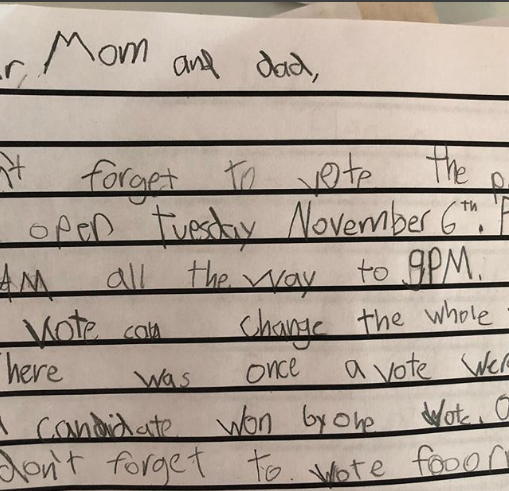 r, Mom and dad,
forget to vote the p
open Tuesday November 6th. F
AM all the way to 9PM.
Vote can change the whole
here was once a vote wer
candidate won by one Vote. O
don't forget to. vote fooor